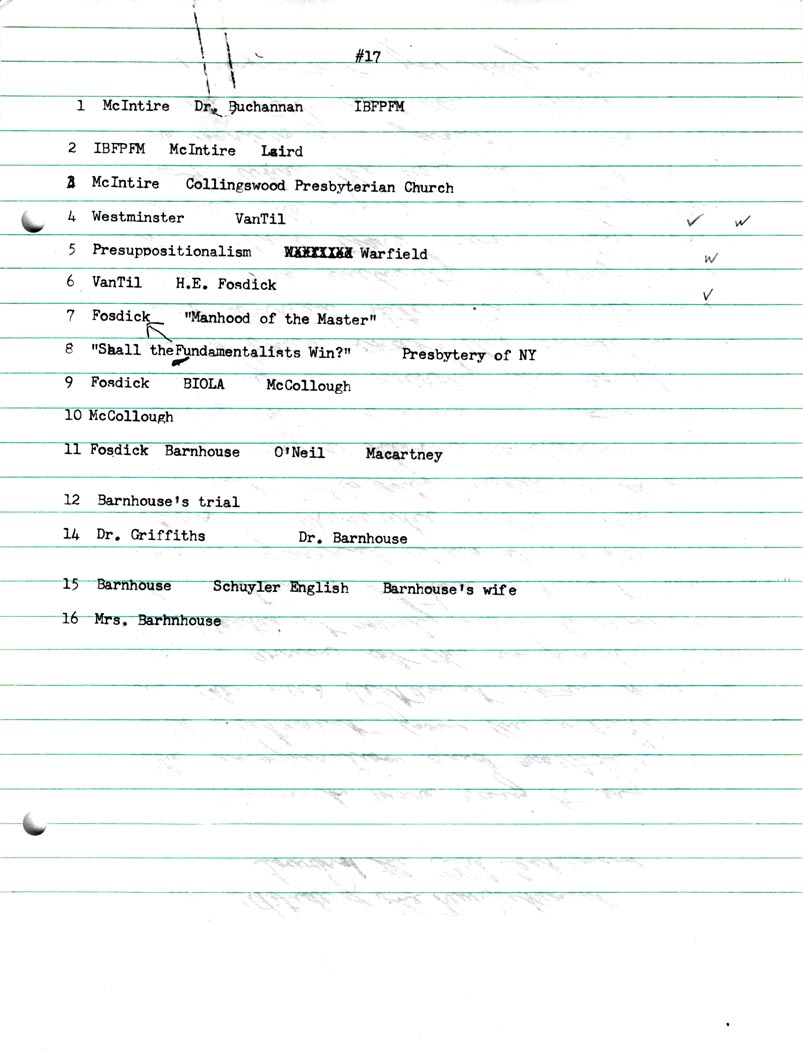 #17
1 McIntire Dr. Buchannan IBFPFM
2 IBFPFM McIntire Laird
3 McIntire Collingswood Presbyterian Church
4 Westminster VanTil ✓ w
5 Presuppositionalism Warfield w
6 VanTil H.E. Fosdick ✓
7 Fosdick "Manhood of the Master"
8 "Shall the Fundamentalists Win?" Presbytery of NY
9 Fosdick BIOLA McCollough
10 McCollough
11 Fosdick Barnhouse O'Neil Macartney
12 Barnhouse's trial
14 Dr. Griffiths Dr. Barnhouse
15 Barnhouse Schuyler English Barnhouse's wife
16 Mrs. Barhnhouse